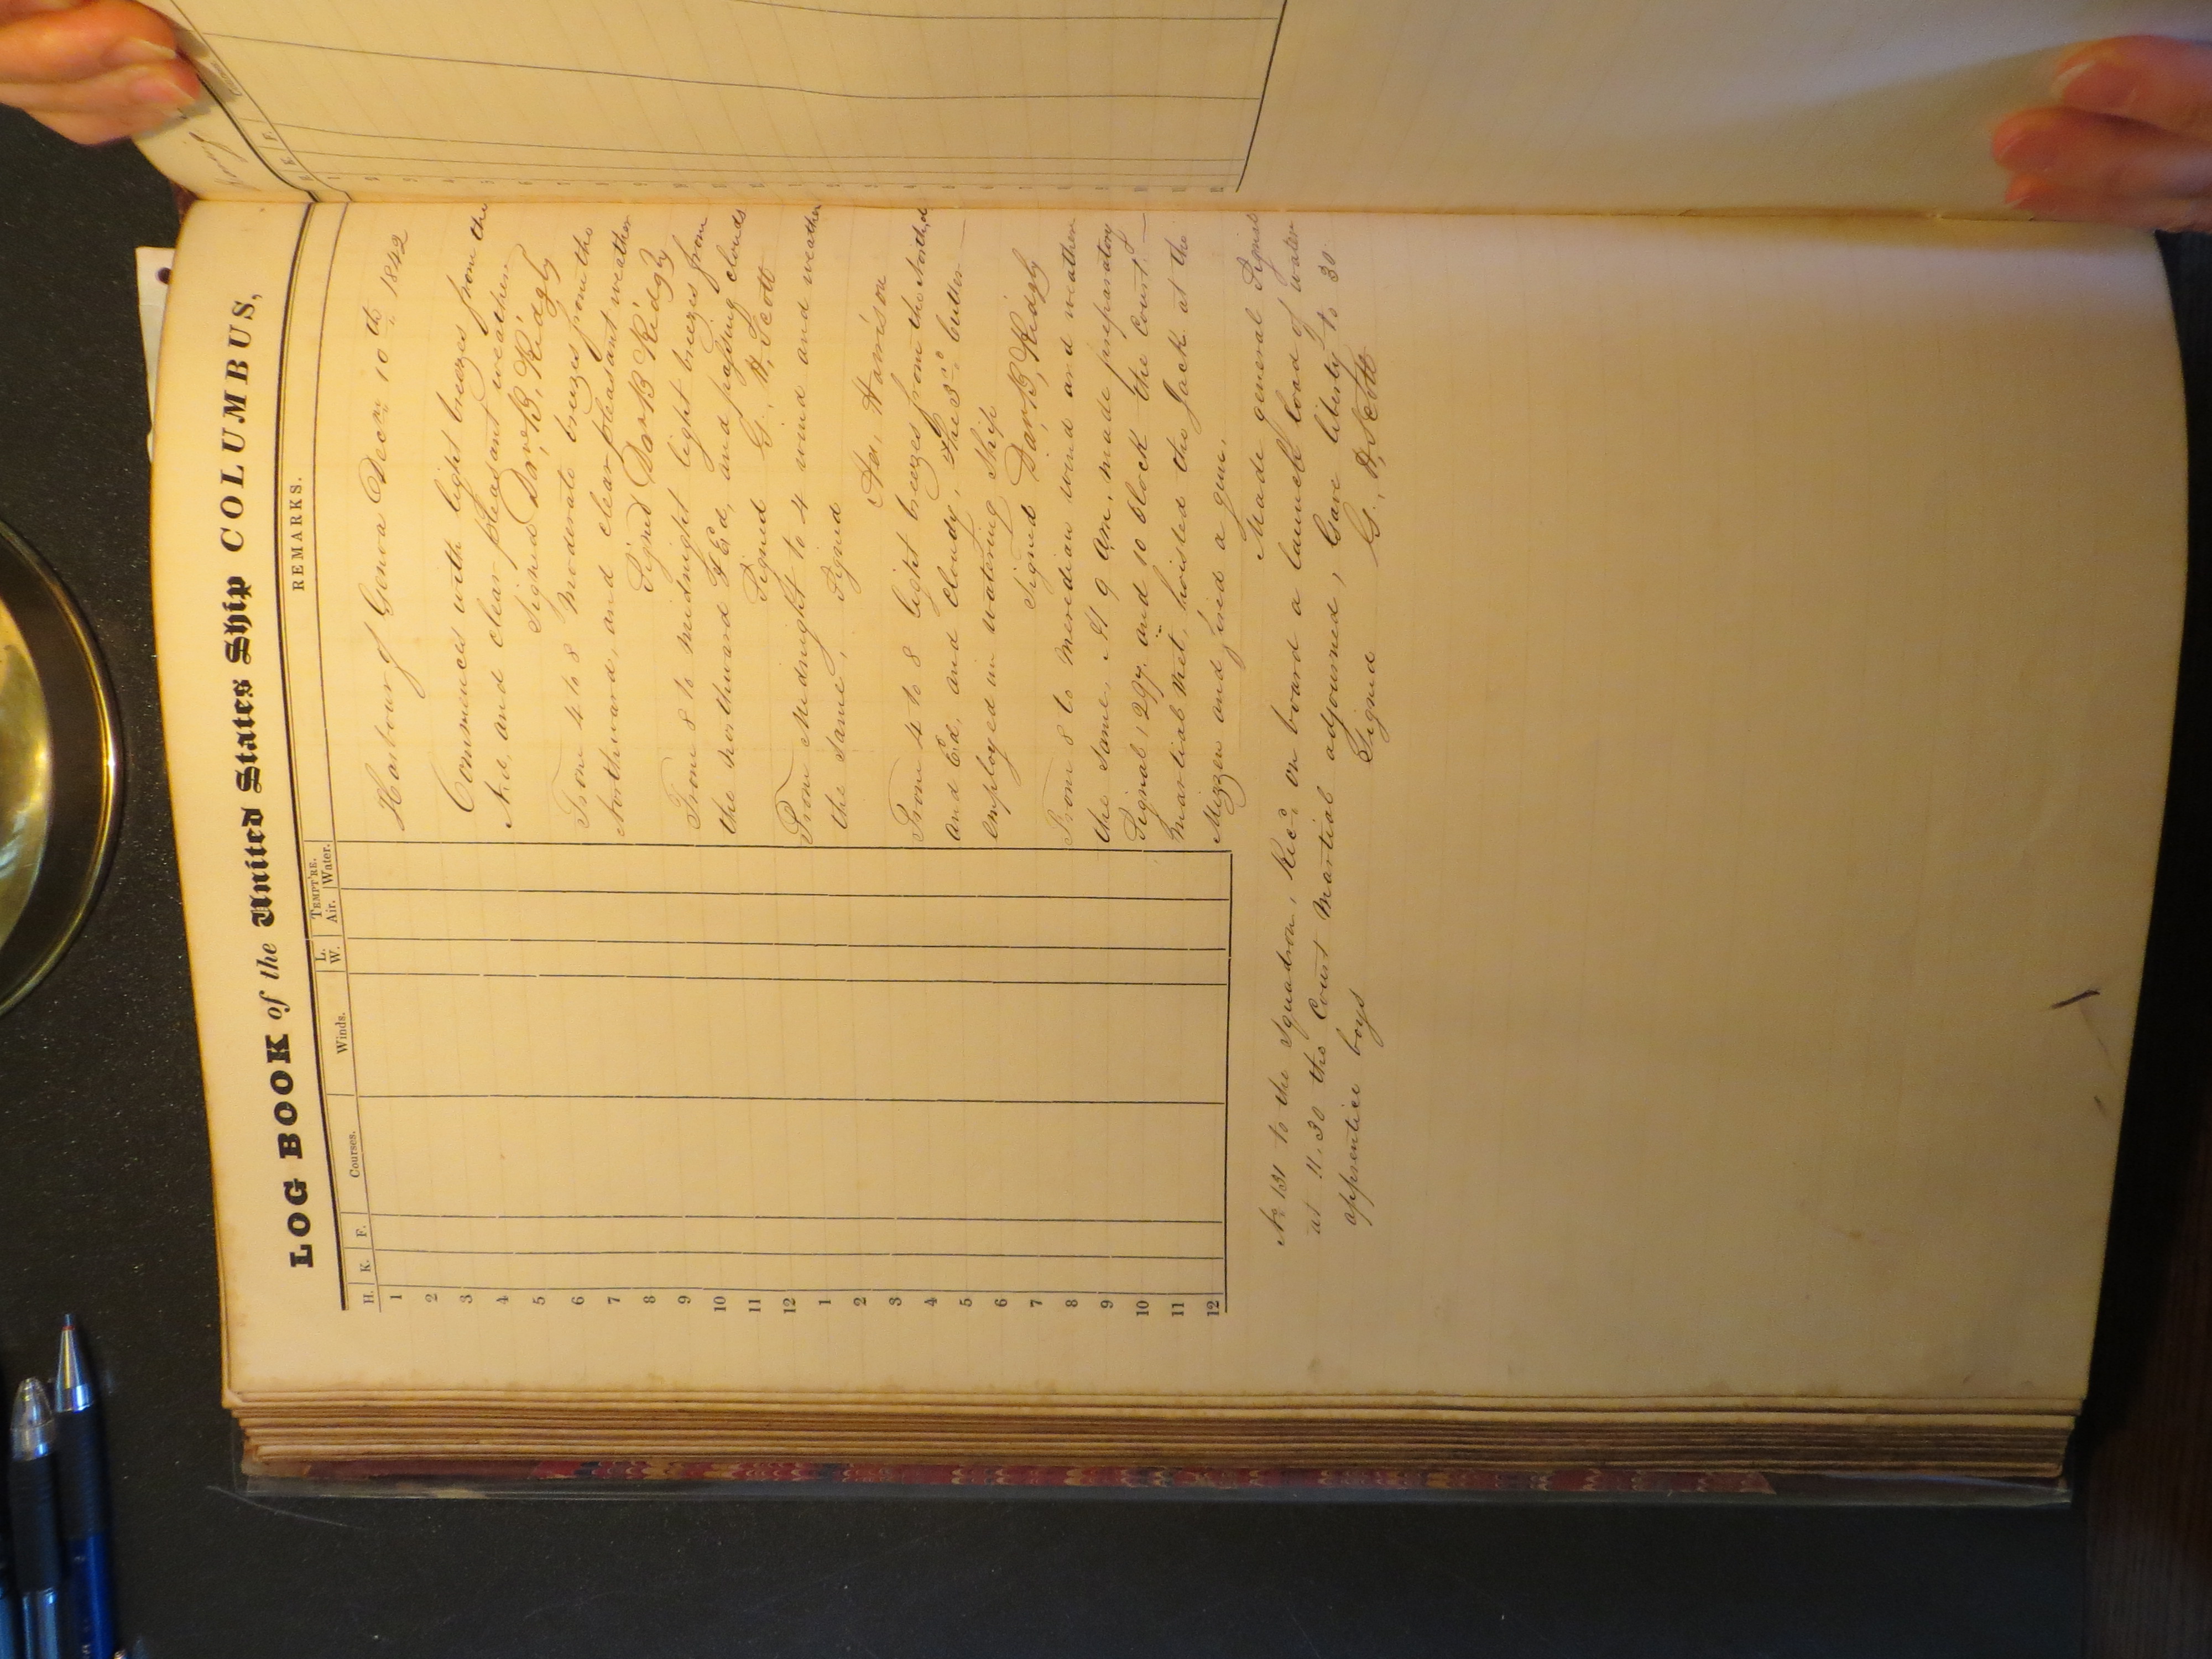 LOG BOOK of the United States Ship COLUMBUS,
H. K. F. Courses. Winds. L. W. TEMPT'RE. Air. Water. REMARKS.
1
2
3
4
5
6
7
8
9
10
11
12
1
2
3
4
5
6
7
8
9
10
11
12
Harbour of Genoa Decem 10th 1842
Commences with light breezes from the
N.d, and clear pleasant weather
Signed Dan B, Ridgly
From 4 to 8 Moderate breezes from the
Northward, and clear pleasant weather
Signed Dan B Ridgly
From 8 to Midnight light breezes from
the northward & Ed, and passing clouds
Signed G, H, Scott
From Midnight to 4 wind and weather
the same, Signed
Harrison
From 4 to 8 light breezes from the North,d
and Ed, and Cloudy, the 3d cutter
employed in watering Ship
Signed Dan B, Ridgly
From 8 to Meredian wind and weather
the same, At 9 am, made preparatory
Signal, 297, and 10 Oclock the Court
martial Met, hoisted the Jack at the
Mizzen and fired a gun,
Made general Signal
No 131 to the Squadron, Recd on board a launch load of water
at 11.30 the Court Martial adjourned, Gave liberty to 30
apprentice boys Signed G, H, Scott